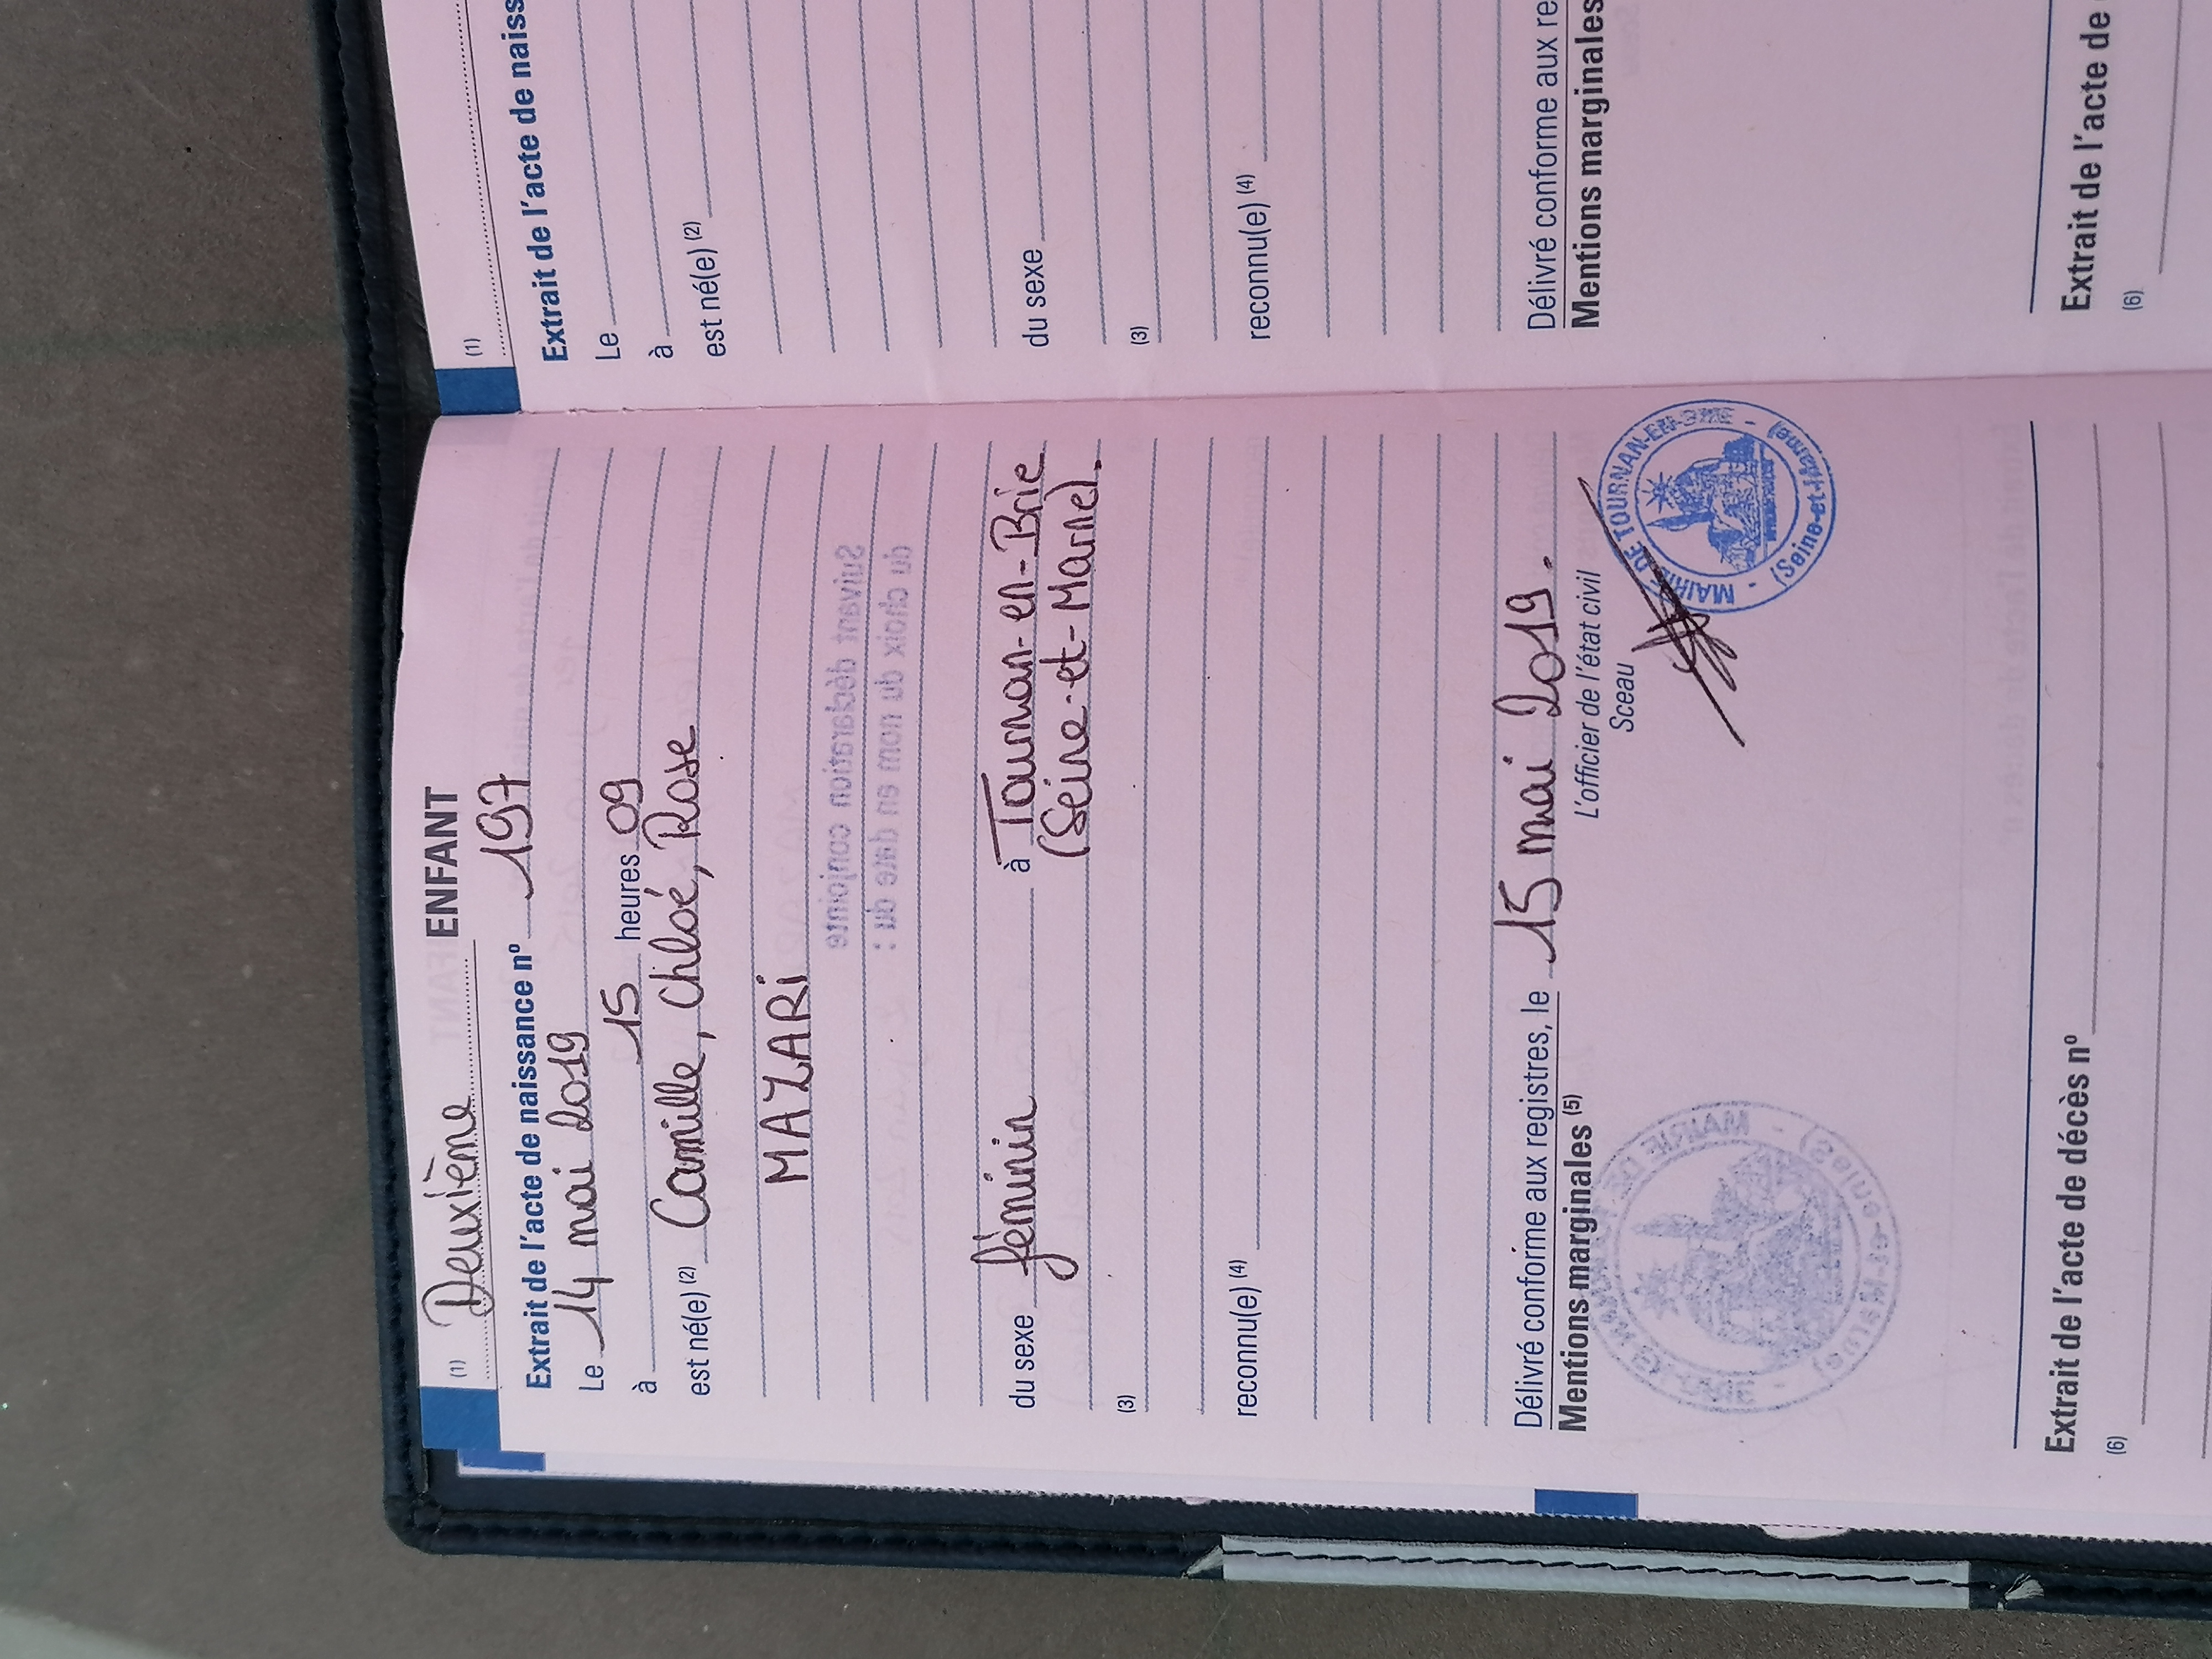 (1) Deuxième ENFANT
Extrait de l'acte de naissance nº 197
Le 14 mai 2019
à 15 heures 09
est né(e) (2) Camille, Chloé, Rose
MAZARI
Suivant déclaration conjointe
du choix du nom en date du :
du sexe féminin à Tournan-en-Brie
(Seine-et-Marne).
(3)
reconnu(e) (4)
Délivré conforme aux registres, le 15 mai 2019.
Mentions marginales (5)
L'officier de l'état civil
Sceau
MAIRIE DE TOURNAN-EN-BRIE
(Seine-et-Marne)
Extrait de l'acte de décès nº
(6)
(1)
Extrait de l'acte de naiss
Le
à
est né(e) (2)
du sexe
(3)
reconnu(e) (4)
Délivré conforme aux re
Mentions marginales
Extrait de l'acte de
(6)